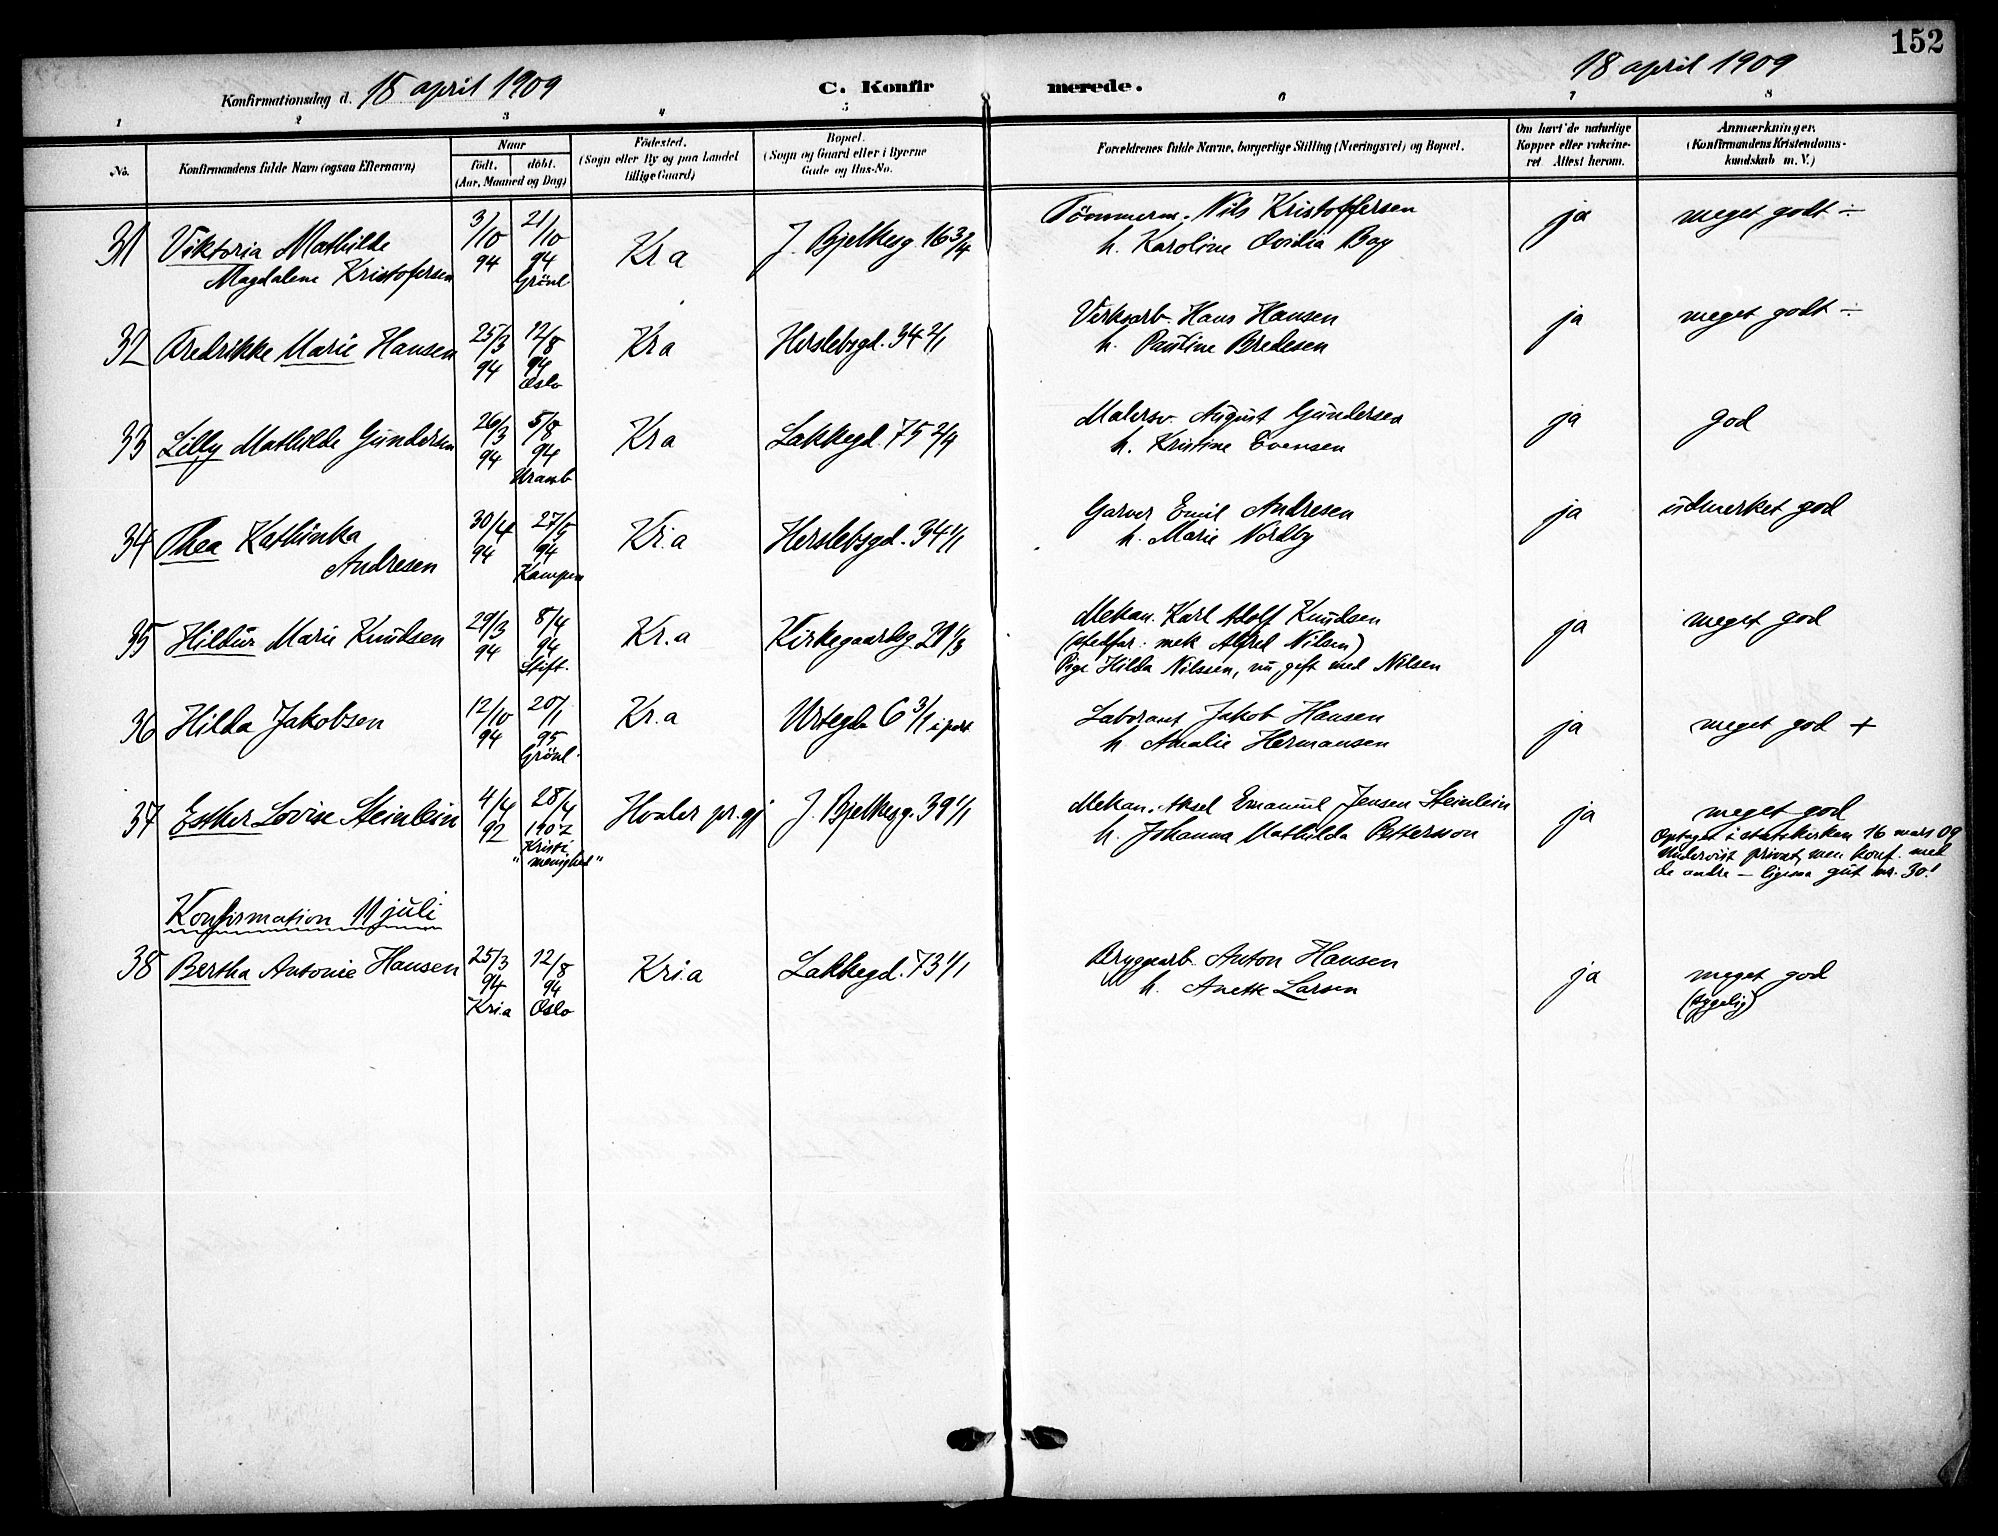 152
Konfirmationsdag d. 18 april 1909
C. Konfirmerede.
18 april 1909
1 2 3 4 5 6 7 8
No.
Konfirmandens fulde Navn (ogsaa Efternavn)
Naar
födt. döbt.
(Aar, Maaned og Dag)
Födested.
(Sogn eller By og paa Landet
tillige Gaard)
Bopæl.
(Sogn og Gaard eller i Byerne
Gade og Hus-No.
Forældrenes fulde Navne, borgerlige Stilling (Næringsvei) og Bopæl.
Om havt'de naturlige
Kopper eller vakcine-
ret Attest herom.
Anmærkninger.
(Konfirmandens Kristendoms-
kundskab m. V.)
31 Viktoria Mathilde
Magdalene Kristofersen
3/10 94
21/10 94 Grönl
Kr a
J. Bjelkesg. 16 3/4
Tömmerm. Nils Kristoffersen
h. Karoline Ovidia Bay
ja
meget godt ÷
32 Fredrikke Marie Hansen
25/3 94
12/8 94 Oslo
Kr a
Herslebsgd. 34 2/1
Verksarb. Hans Hansen
h. Pauline Bredesen
ja
meget godt ÷
33 Lilly Mathilde Gundersen
26/3 94
5/8 94 Uranb
Kr a
Lakkegd. 75 2/9
Malersv. August Gundersen
h. Kristine Evensen
ja
god
34 Thea Kathinka
Andresen
30/4 94
27/5 94 Kampen
Kr.a
Herslebsgd. 34 1/1
Garver Emil Andresen
h. Marie Nordby
ja
udmerket god
35 Hildur Marie Knudsen
29/3 94
8/4 94 Stift.
Kr.a
Kirkegaardsg. 21 1/3
Mekan. Karl Adolf Knudsen
(stedfar: mek Alfred Nilsen)
Pige Hilda Nilssen, nu gift med Nilsen
ja
meget god
36 Hilda Jakobsen
12/10 94
20/1 95 Grönl.
Kr.a
Urtegda 6 3/1 i port
Laborant Jakob Hansen
h Amalie Hermansen
ja
meget god +
37 Esther Lovise Steinlein
4/4 92
28/4 1907 Kristi
"menighed"
Hvaler pr.gj
J. Bjelkesg. 39 1/1
Mekan. Aksel Emanuel Jensen Steinlein
h. Johanna Mathilda Pettersson
ja
meget god
Optaget i statskirken 16 mars 09
Undervist privat, men konf. med
de andre — ligesaa gut nr. 30!
Konfirmation 11 juli
38 Bertha Antonie Hansen
25/3 94 Kria
12/8 94 Oslo
Kri.a
Lakkegd. 73 1/1
Bryggearb. Anton Hansen
h. Anette Larsen
ja
meget god
(sygelig)